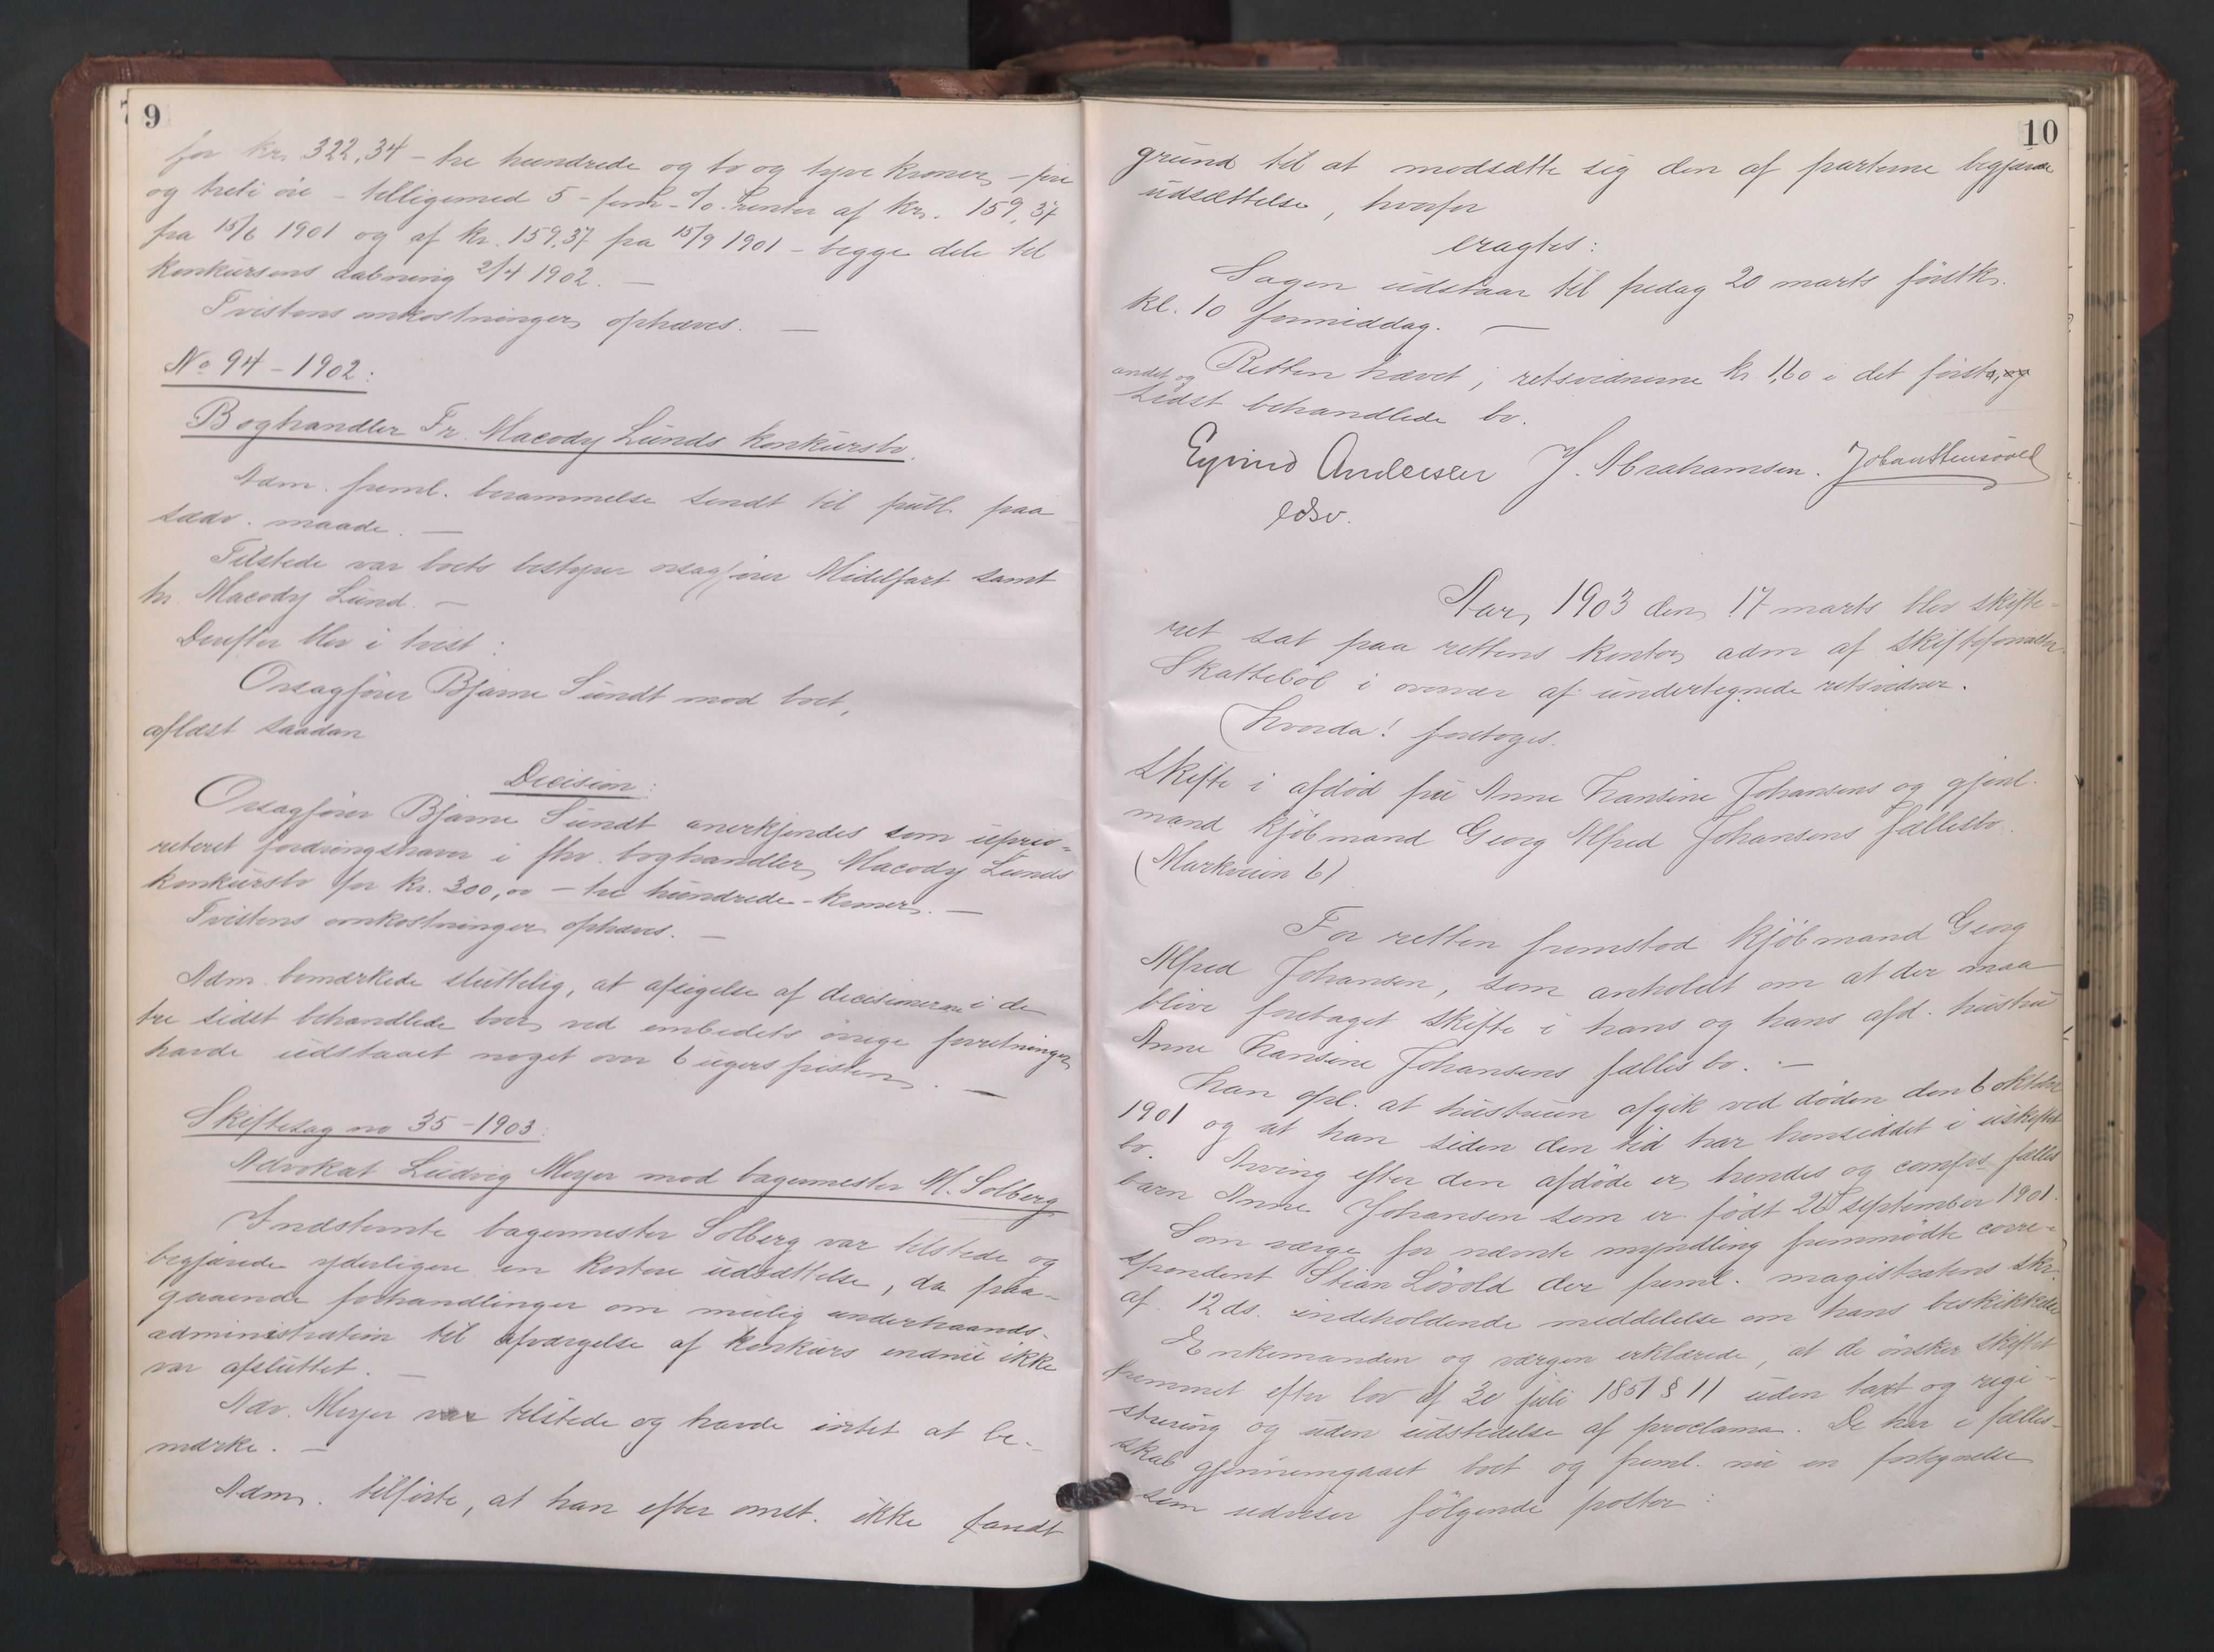 9
for kr. 322,34 – tre hundrede og to og tyve kroner – fire
og treti øre – tilligemed 5 – fem – o/o renter af kr. 159,37
fra 15/6 1901 og af kr. 159,37 fra 15/9 1901 – begge dele til
konkursens aabning 2/4 1902. –
Tvistens omkostninger ophæves. –
No 94 – 1902:
Boghandler Fr. Macody Lunds konkursbo.
Adm. freml. berammelse sendt til publ. paa
sædv. maade. –
Tilstede var boets bestyrer orsagfører Midelfart samt
hr. Macody Lund. –
Derefter blev i tvist:
Orsagfører Bjarne Sundt mod boet,
aflæst saadan
Decision:
Orsagfører Bjarne Sundt anerkjendes som uprio=
riteret fordringshaver i fhv. boghandler Macody Lunds
konkursbo for kr. 300,00 – tre hundrede – kroner. –
Tvistens omkostninger ophæves. –
Adm. bemærkede sluttelig, at afsigelse af decisionerne i de
tre sidst behandlede boer ved embedets øvrige forretninger
havde udstaaet noget over 6 ugers fristen. –
Skiftesag no 35 – 1903:
Advokat Ludvig Meyer mod bagermester M. Solberg.
Indstevnte bagermester Solberg var tilstede og
begjærede yderligere en kortere udsættelse, da paa-
gaaende forhandlinger om mulig underhaands-
administration til afværgelse af konkurs endnu ikke
var afsluttet. –
Adv. Meyer var tilstede og havde intet at be-
mærke. –
Adm. tilførte, at han efter omst. ikke fandt
10
grund til at modsætte sig den af parterne begjærede
udsættelse, hvorfor
eragtes:
Sagen udstaar til fredag 20 marts førstk.
kl. 10 formiddag. –
Retten hævet; retsvidnerne kr 1,60 i det første, og
andet og
sidst behandlede bo.
Eyvind Andersen J. Abrahamsen. Johan Stensvold
edsv.
Aar 1903 den 17 marts blev skifte-
ret sat paa rettens kontor adm af skifteforvalter
Skattebøl i overvær af undertegnede retsvidner.
Hvorda! foretoges.
Skifte i afdød fru Anne Hansine Johansens og gjenl.
mand kjøbmand Georg Alfred Johansens fællesbo.
(Markveien 6)
For retten fremstod kjøbmand Georg
Alfred Johansen, som anholdt om at der maa
blive foretaget skifte i hans og hans afd. hustru
Anne Hansine Johansens fællesbo. –
Han opl. at hustruen afgik ved døden den 6 oktober
1901 og at han siden den tid har hensiddet i uskiftet
bo. Arving efter den afdøde er hendes og comprs. fælles
barn Anne Johansen som er født 26 september 1901.
Som værge for nævnte myndling fremmødte corre-
spondent Stian Løvold der freml. magistratens skr.
af 12 ds. indeholdende meddelelse om hans beskikkelse
Enkemanden og værgen erklærede, at de ønsker skiftet
fremmet efter lov af 30 juli 1851 § 11 uden taxt og regi-
strering og uden udstedelse af proclama. De har i fælles-
skab gjennemgaaet boet og freml. nu en fortegnelse
som udviser følgende poster: